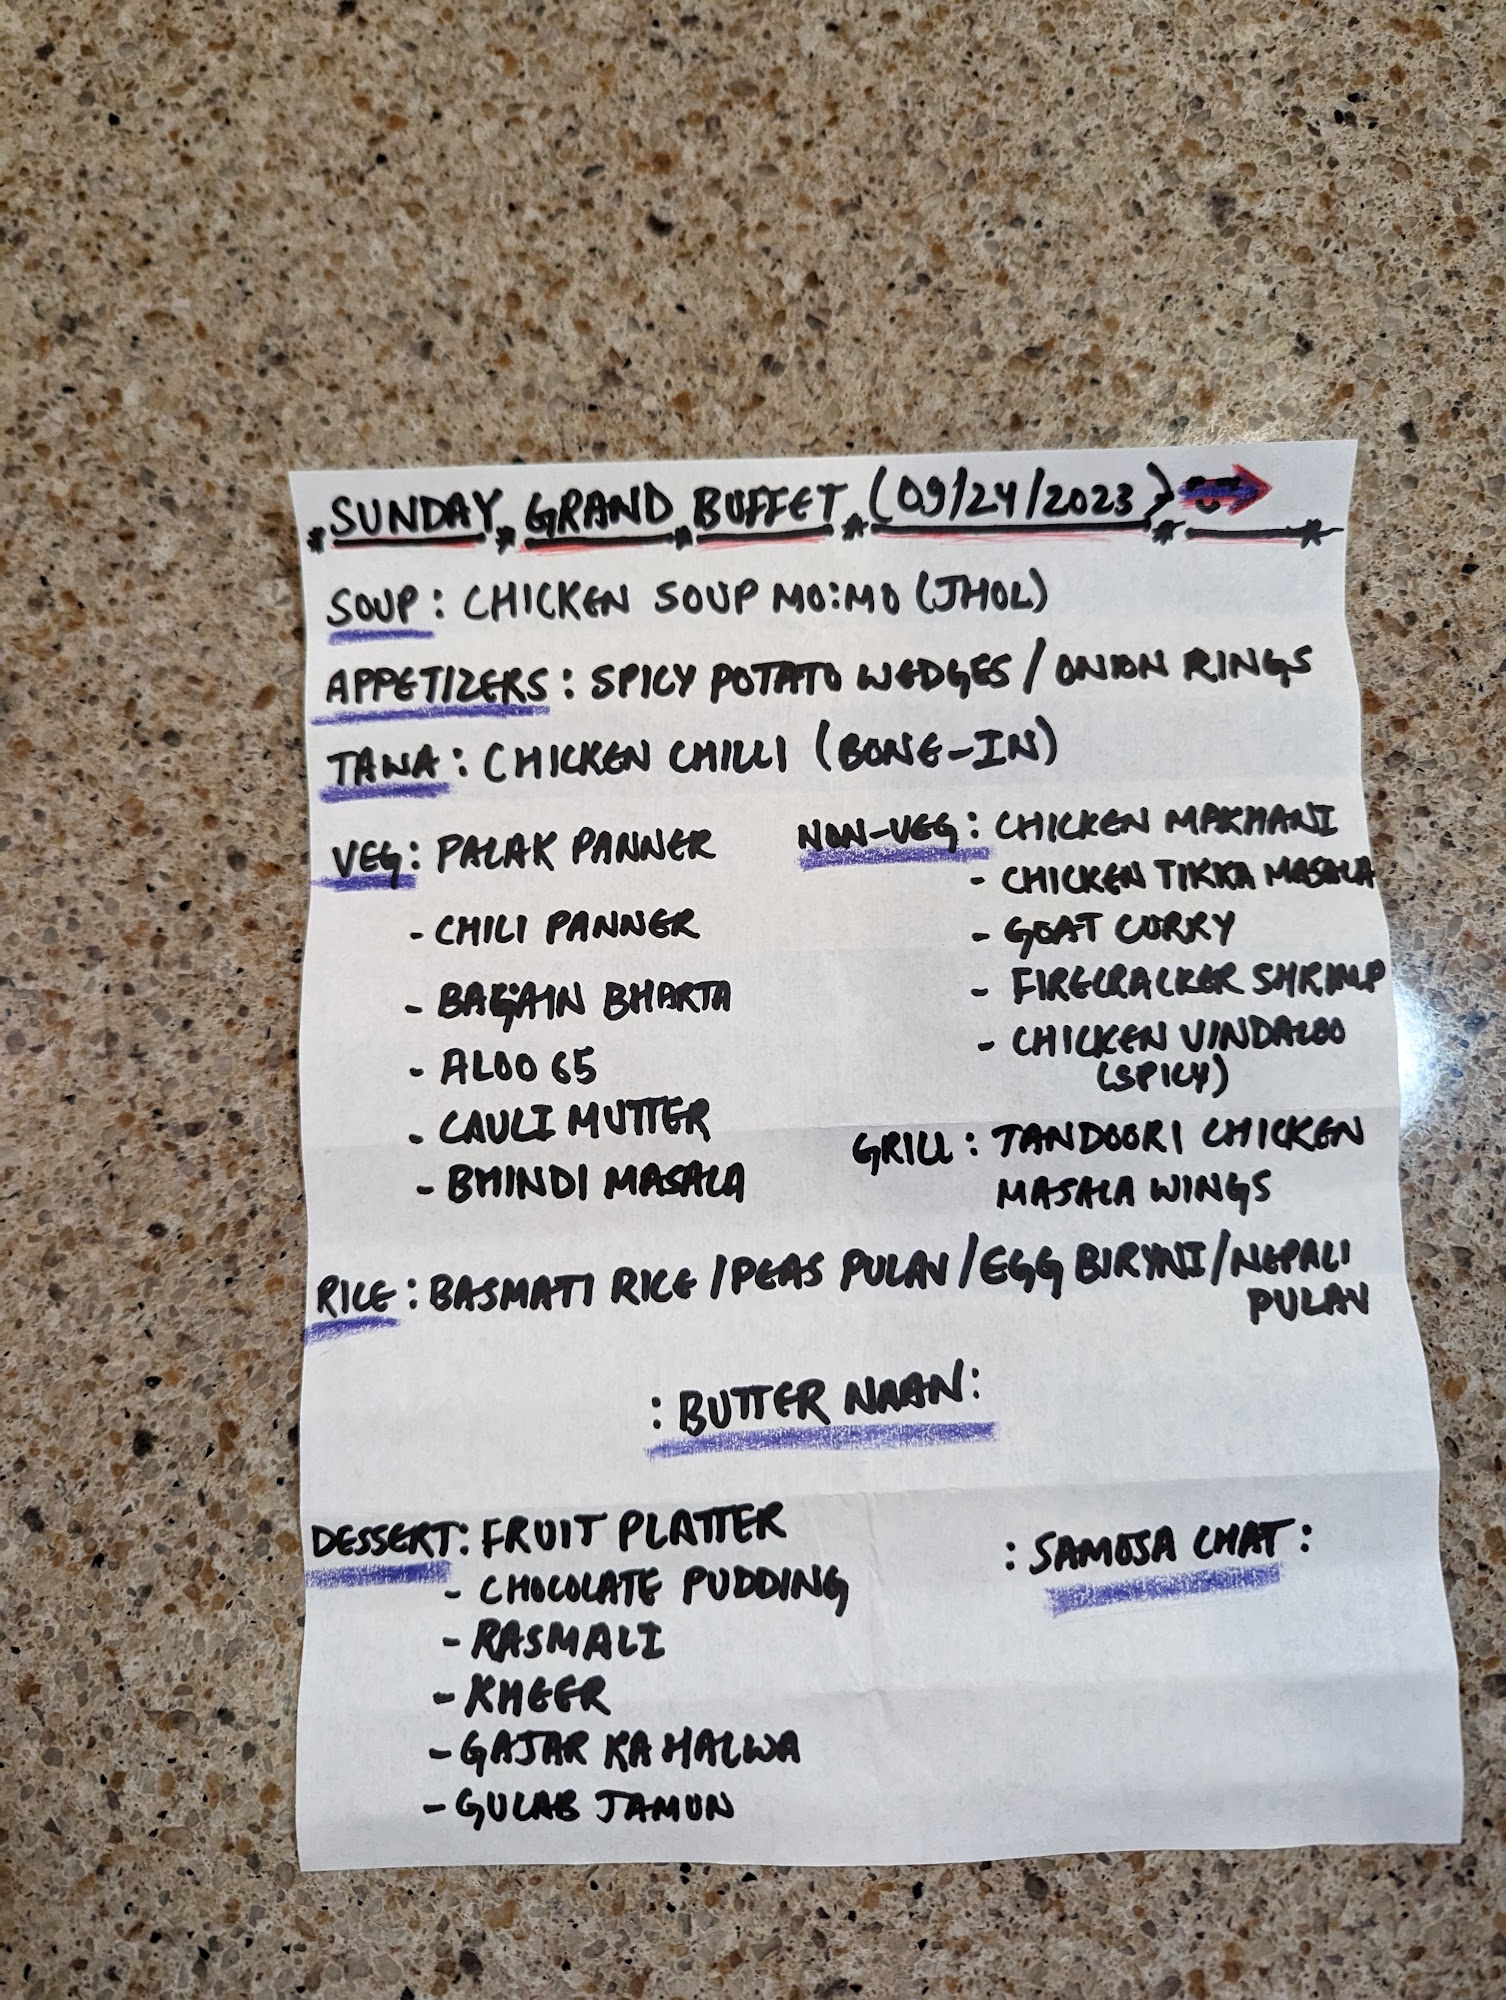 SUNDAY GRAND BUFFET (09/24/2023)
SOUP: CHICKEN SOUP MO:MO (JHOL)
APPETIZERS: SPICY POTATO WEDGES / ONION RINGS
TAWA: CHICKEN CHILLI (BONE-IN)
VEG: PALAK PANNER
- CHILI PANNER
- BAGAIN BHARTA
- ALOO 65
- CAULI MUTTER
- BHINDI MASALA
NON-VEG: CHICKEN MAKHANI
- CHICKEN TIKKA MASALA
- GOAT CURRY
- FIRECRACKER SHRIMP
- CHICKEN VINDALOO
(SPICY)
GRILL: TANDOORI CHICKEN
MASALA WINGS
RICE: BASMATI RICE / PEAS PULAV / EGG BIRYNI / NEPALI
PULAV
: BUTTER NAAN:
DESSERT: FRUIT PLATTER
- CHOCOLATE PUDDING
- RASMALI
- KHEER
- GAJAR KA HALWA
- GULAB JAMUN
: SAMOSA CHAT: